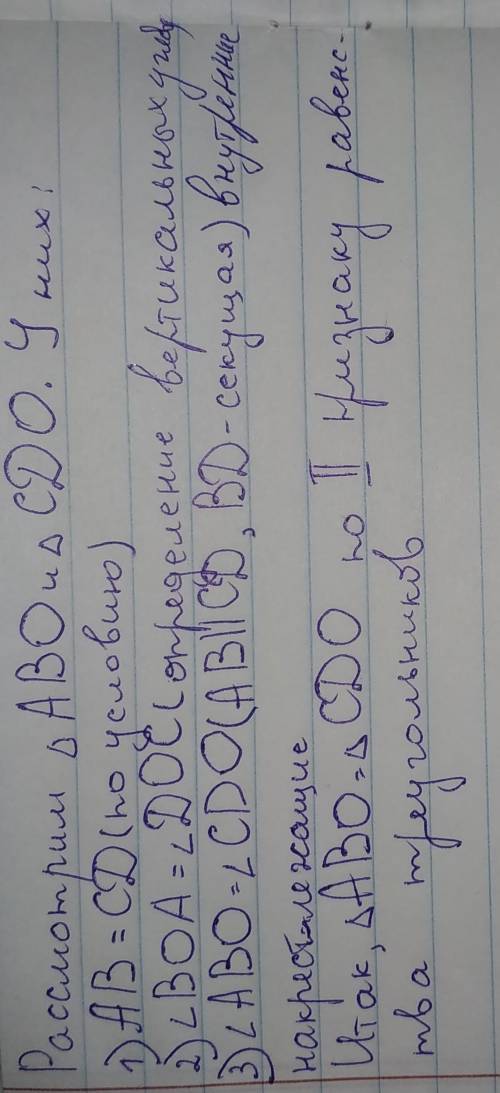 Рассмотрим △ ABO и △ CDO. У них:
1) AB = CD (по условию)
2) ∠BOA = ∠DOC (определение вертикальных углов
3) ∠ABO = ∠CDO (AB || CD, BD - секущая) внутренние
накрест-лежащие
Итак, △ABO = △ CDO по II признаку равенс-
тва треугольников